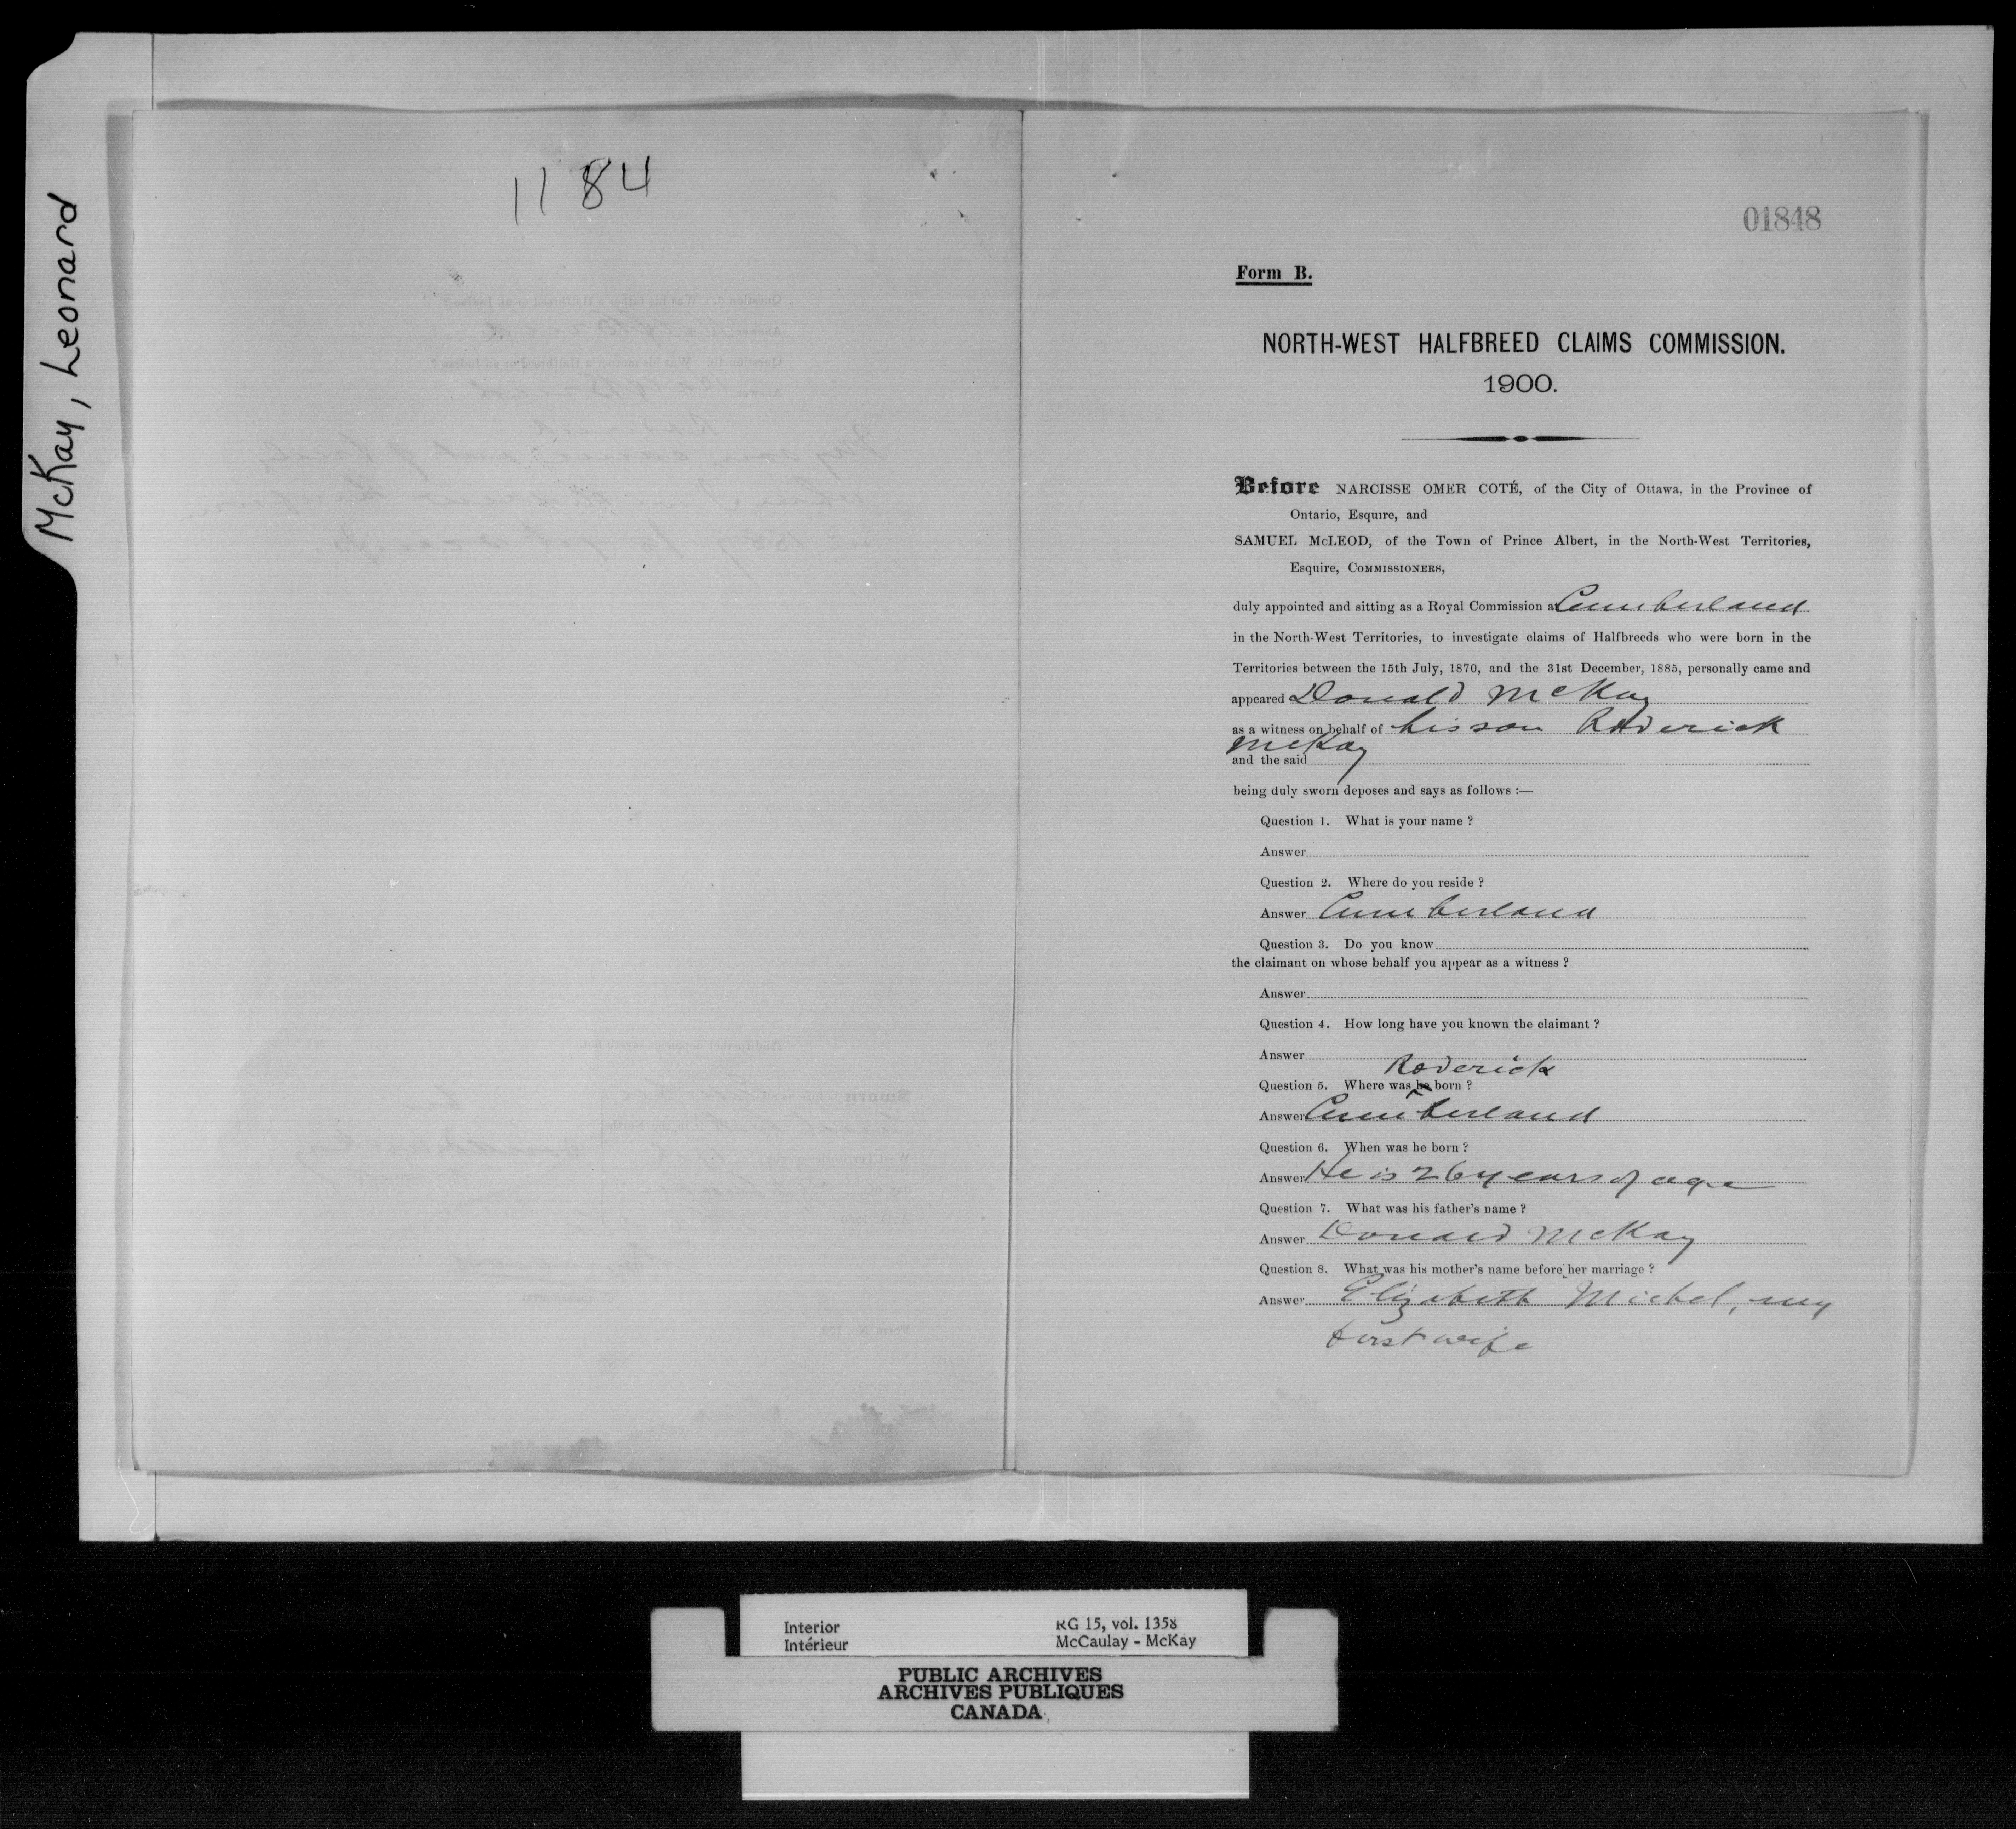 McKay, Leonard
1184
01848
Form B.
NORTH-WEST HALFBREED CLAIMS COMMISSION.
1900.
Before NARCISSE OMER COTÉ, of the City of Ottawa, in the Province of
Ontario, Esquire, and
SAMUEL McLEOD, of the Town of Prince Albert, in the North-West Territories,
Esquire, COMMISSIONERS,
duly appointed and sitting as a Royal Commission at Cumberland
in the North-West Territories, to investigate claims of Halfbreeds who were born in the
Territories between the 15th July, 1870, and the 31st December, 1885, personally came and
appeared Donald McKay
as a witness on behalf of his son Roderick
McKay
and the said
being duly sworn deposes and says as follows :—
Question 1. What is your name ?
Answer
Question 2. Where do you reside ?
Answer Cumberland
Question 3. Do you know
the claimant on whose behalf you appear as a witness ?
Answer
Question 4. How long have you known the claimant ?
Answer
Roderick
Question 5. Where was he born ?
Answer Cumberland
Question 6. When was he born ?
Answer He is 26 years of age
Question 7. What was his father's name ?
Answer Donald McKay
Question 8. What was his mother's name before her marriage ?
Answer Elizabeth Michel, my
first wife
Interior RG 15, vol. 1358
Intérieur McCaulay - McKay
PUBLIC ARCHIVES
ARCHIVES PUBLIQUES
CANADA